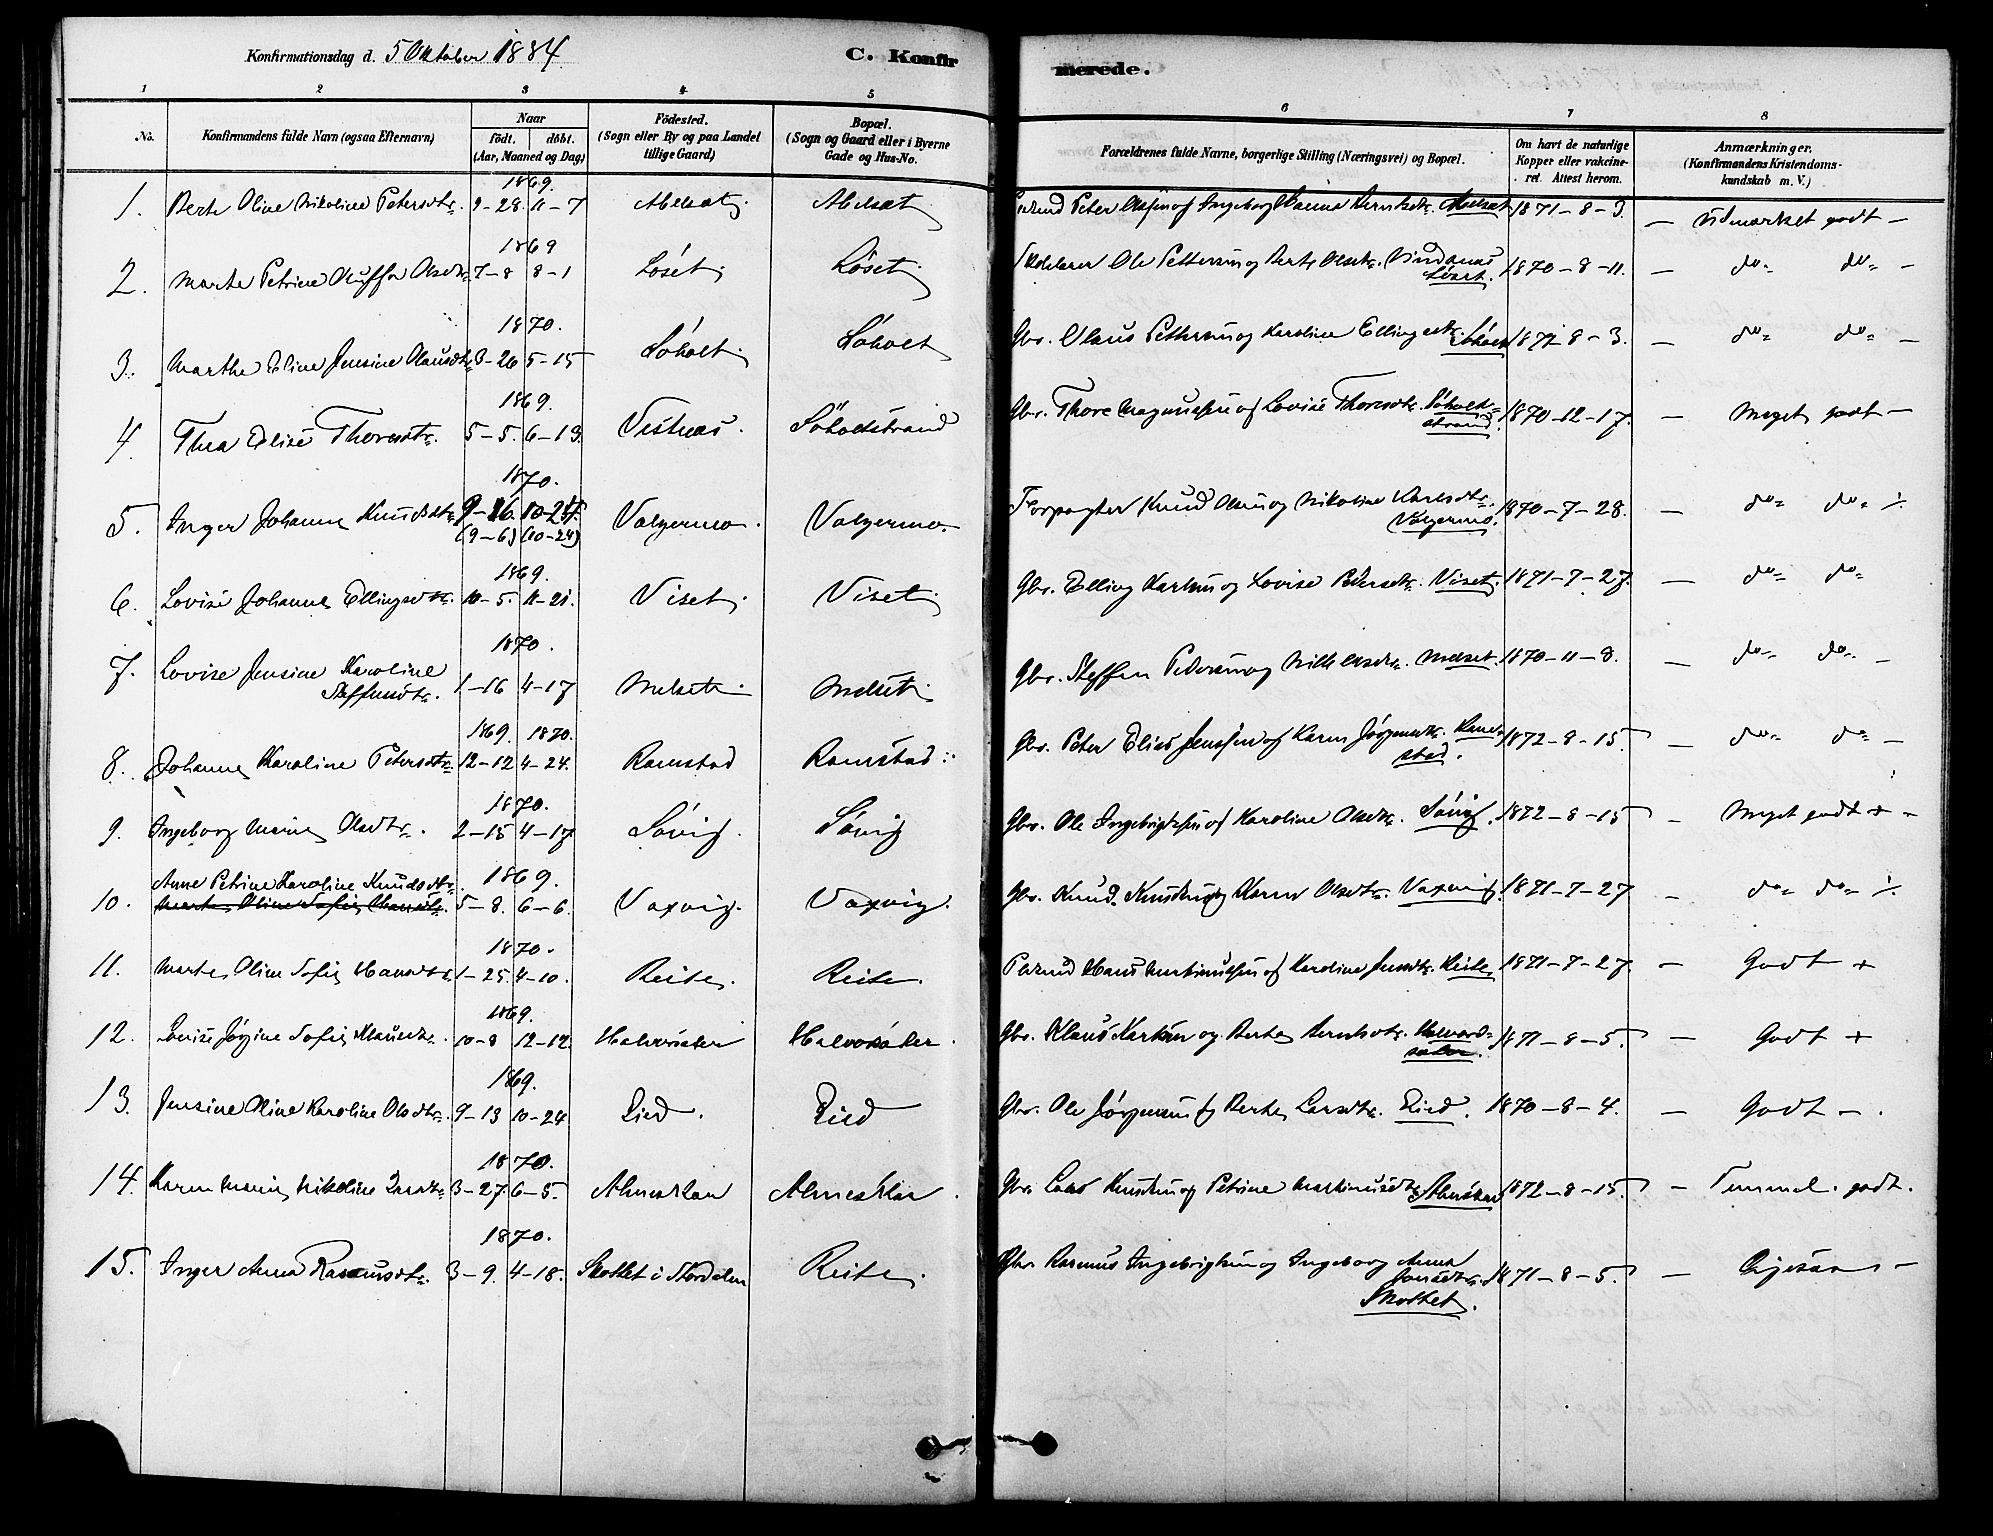 Konfirmationsdag d. 5 Oktober 1884. C. Konfirmerede.
1 2 3 4 5 6 7 8
No. Konfirmandens fulde Navn (ogsaa Efternavn) Naar födt. döbt. (Aar, Maaned og Dag) Födested. (Sogn eller By og paa Landet tillige Gaard) Bopæl. (Sogn og Gaard eller i Byerne Gade og Hus-No. Forældrenes fulde Navne, borgerlige Stilling (Næringsvei) og Bopæl. Om havt de naturlige Kopper eller vakcineret. Attest herom. Anmærkninger. (Konfirmandens Kristendomskundskab m. V.)
1869.
1. Berte Oline Nikoline Petersdtr. 9-28. 11-7 Peter Ingeborg Hanna 1871-8-3. — Udmærket godt —
1869
2. Marte Petrine Olsdtr. 7-8 8-1 Löset. Löset. Ole Pettersen og Berte Olsdtr. Löset. 1870-8-11. — do do —
1870.
3. Marthe Eline Jensine Olausdtr. 3-26 5-15 Söholt. Söholt Gbr. Olaus Pettersen og Karoline Ellingsdtr. Söholt 1872 8-3. — do do —
1869.
4. Thea Elise Thoresdtr. 5-5. 6-13. Vestnes. Söholtstrand Gbr. Thore Magnussen og Lovise Thoresdtr. Söholtstrand. 1870-12-17. — Meget godt —
1870.
5. Inger Johanne Knudsdtr. 9-16. 10-24. (9-6) (10-24) Valgermo. Valgermo. Forpagter Knud Olsen og Nikoline Karlsdtr. Valgermo. 1870-7-28. — do do
1869.
6. Lovise Johanne Ellingsdtr. 10-5. 11-21. Viset. Viset. Gbr. Elling Karlsen og Lovise Petersdtr. Viset. 1871-7-27. — do do
1870.
7. Lovise Jensine Karoline Steffensdtr. 1-16 4-17 Melset. Melset. Gbr. Steffen Pedersen og Melset. 1870-11-8. — do do —
1869. 1870.
8. Johanne Karoline Petersdtr. 12-12 4-24. Ramstad Ramstad. Gbr. Peter Elias Jenssen og Karen Jörgensdtr. Ramstad. 1872-8-15. — do do —
1870.
9. Ingeborg Marie Olsdtr. 2-15 4-17 Sövig. Sövig Gbr. Ole Ingebrigtsen og Karoline Olsdtr. Sövig. 1872-8-15 — Meget godt + —
1869.
10. Anne Petrine Karoline Knudsdtr. 5-8. 6-6. Vaxvig. Vaxvig. Gbr. Knud Knudsen og Karen Olsdtr. Vaxvig. 1871-7-27 — do do
Marte Oline Sofie Hansdtr.
1870.
11. Marte Oline Sofie Hansdtr. 1-25. 4-10. Reite. Reite. Hans Martinussen og Karoline Jensdtr. Reite 1871-7-27. — Godt +
1869.
12. Lovise Jörgine Sofie Klausdtr. 10-8 12-12. Halvorsaker Halvorsaker. Gbr. Klaus Karlsen og Berte Berntsdtr. 1871-8-5. — Godt +
1869.
13. Jensine Oline Karoline Olsdtr. 9-13 10-24 Lied. Lied Gbr. Ole Jörgensen og Berte Larsdtr. Lied. 1870-8-4. — Godt —.
1870.
14. Karen Marie Nikoline Larsdtr. 3-27. 6-5. Almeskar Almeskar. Gbr. Lars Knudsen og Petrine Martinusdtr. Almeskar 1872-8-15. — Temmel. godt.
1870.
15. Inger Anna Rasmusdtr. 3-9. 4-18. Skotlet i Stordalen Reite. Gbr. Rasmus Ingebrigtsen og Ingeborg Anna Jonsdtr. Skotlet. 1871-8-5. — —